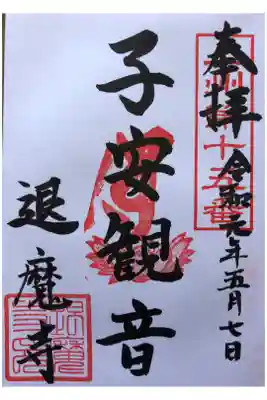 奉拝
令和元年五月七日
子安観音
退魔寺